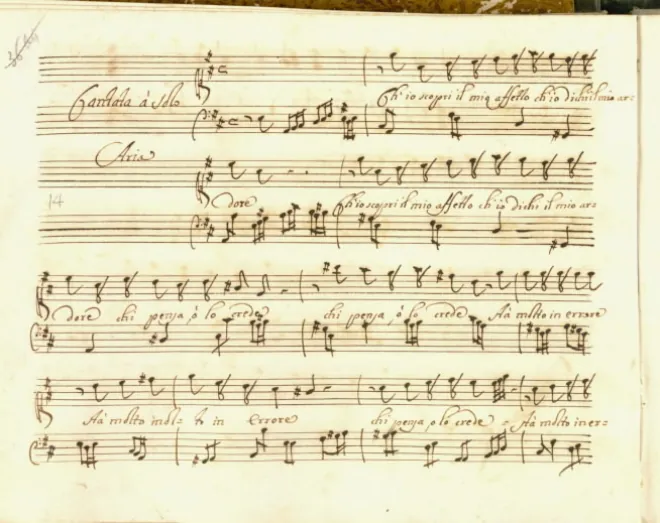 Cantata à Solo
Ch'io scopri il mio affetto ch'io dichi il mio ar=
Aria
14
dore Ch'io scopri il mio affetto ch'io dichi il mio ar=
dore chi pensa, ò lo crede chi pensa, ò lo crede Và molto in errore
Và molto mol= to in Errore chi pensa, o lo crede = Và molto in er=